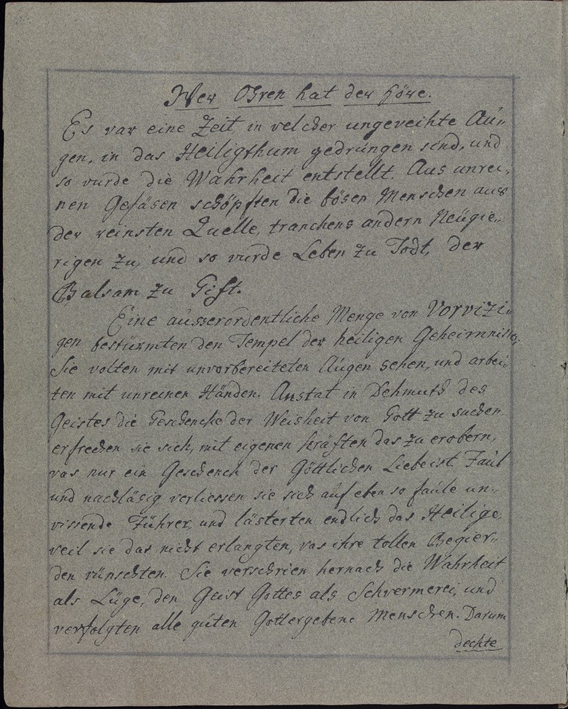 Wer Ohren hat der höre.
Es war eine Zeit in welcher ungeweihte Au-
gen, in das Heiligthum gedrungen sind, und
so wurde die Wahrheit entstellt. Aus unrei-
nen Gefäsen schöpften die bösen Menschen aus
der reinsten Quelle, tranckens andern Neugie-
rigen zu, und so wurde Leben zu Todt, der
Balsam zu Gift.
Eine ausserordentliche Menge von Vorwizi-
gen bestürmten den Tempel der heiligen Geheimnisse,
Sie wolten mit unvorbereiteten Augen sehen, und arbei-
ten mit unreinen Händen. Anstat in Dehmuth des
Geistes die Geschencke der Weisheit von Gott zu suchen
erfrechen sie sich, mit eigenen Kräften das zu erobern,
was nur ein Geschenck der Göttlichen Liebe ist. Faul
und nachläsig verliessen sie sich auf eben so faule un-
wissende Führer, und lästerten endlich das Heilige,
weil sie das nicht erlangten, was ihre tollen Begier-
den wünschten. Sie verschrien hernach die Wahrheit
als Lüge, den Geist Gottes als Schwermerei, und
verfolgten alle guten Gottergebene Menschen. Darum
dechte